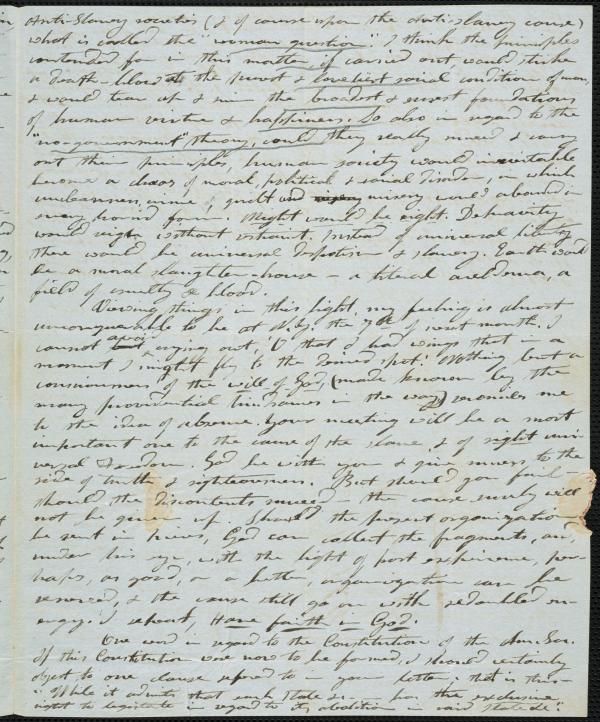 Anti-Slavery societies (& of course upon the Anti-slavery cause)
what is called the "woman question". I think the principles
contended for in this matter, if carried out would strike
a death-blow at the purest & loveliest social condition of man,
& would tear up & ruin the broadest & surest foundations
of human virtue & happiness. So also in regard to the
"no-government" theory, could they really succeed & carry
out their principles, human society would inevitable
become a chaos of moral, political & social disorder, in which
uncleanness, crime, guilt and misery would abound in
every horrid form. Might would be right. Depravity
would reign without restraint. Instead of universal liberty
there would be universal despotism & slavery. Earth would
be a moral slaughter-house — a literal aceldama, a
field of cruelty & blood.
Viewing things in this light, my feeling is almost
unconquerable to be at N.Y. the 7th of next month. I
cannot avoid crying out, 'O that I had wings that in a
moment I might fly to the desired spot.' Nothing but a
consciousness of the will of God, (made known by the
many providential hindrances in the way) reconciles me
to the idea of absence. Your meeting will be a most
important one to the cause of the slave, & of right uni-
versal freedom. God be with you & give success to the
side of truth & righteousness. But should you fail —
should the discontents succeed — the cause surely will
not be given up. Should the present organization
be rent in pieces, God can collect the fragments, and,
under his eye, with the light of past experience, per-
haps, as good, or a better, organization can be
renewed, & the cause still go on with redoubled en-
ergy. I repeat, Have faith in God.
One word in regard to the Constitution of the Am. Soc.
If this Constitution were now to be formed, I should certainly
object to one clause refered to in your letter; that is this —
"While it admits that each State has the exclusive
right to legislate in regard to its abolition in said state &c."